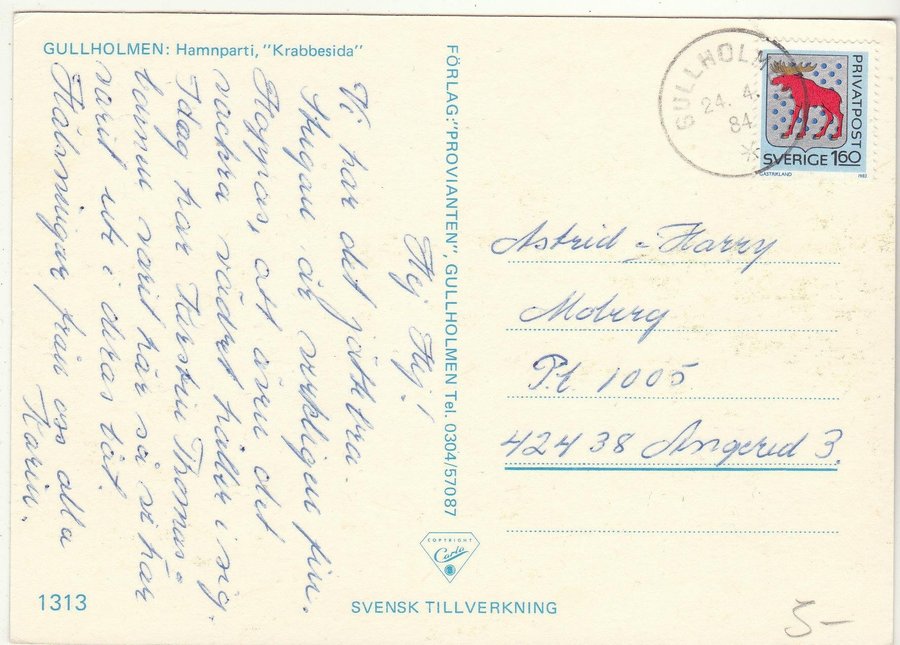 GULLHOLMEN: Hamnparti, "Krabbesida"
Hej Hej!
Vi har det jättebra.
Stugan är verkligen fin.
Hoppas, att även det
vackra vädret håller i sig.
Idag har Kerstin Thomas o
barnen varit här så vi har
varit ute i deras båt.
Hälsningar från oss alla
Karin.
FÖRLAG: "PROVIANTEN", GULLHOLMEN Tel. 0304/57087
COPYRIGHT
Carla
1313
SVENSK TILLVERKNING
GULLHOLM
24. 4.
84
PRIVATPOST
SVERIGE 160
GÄSTRIKLAND 1982
Astrid o Harry
Moberg
Pl 1005
42438 Angered 3.
5-